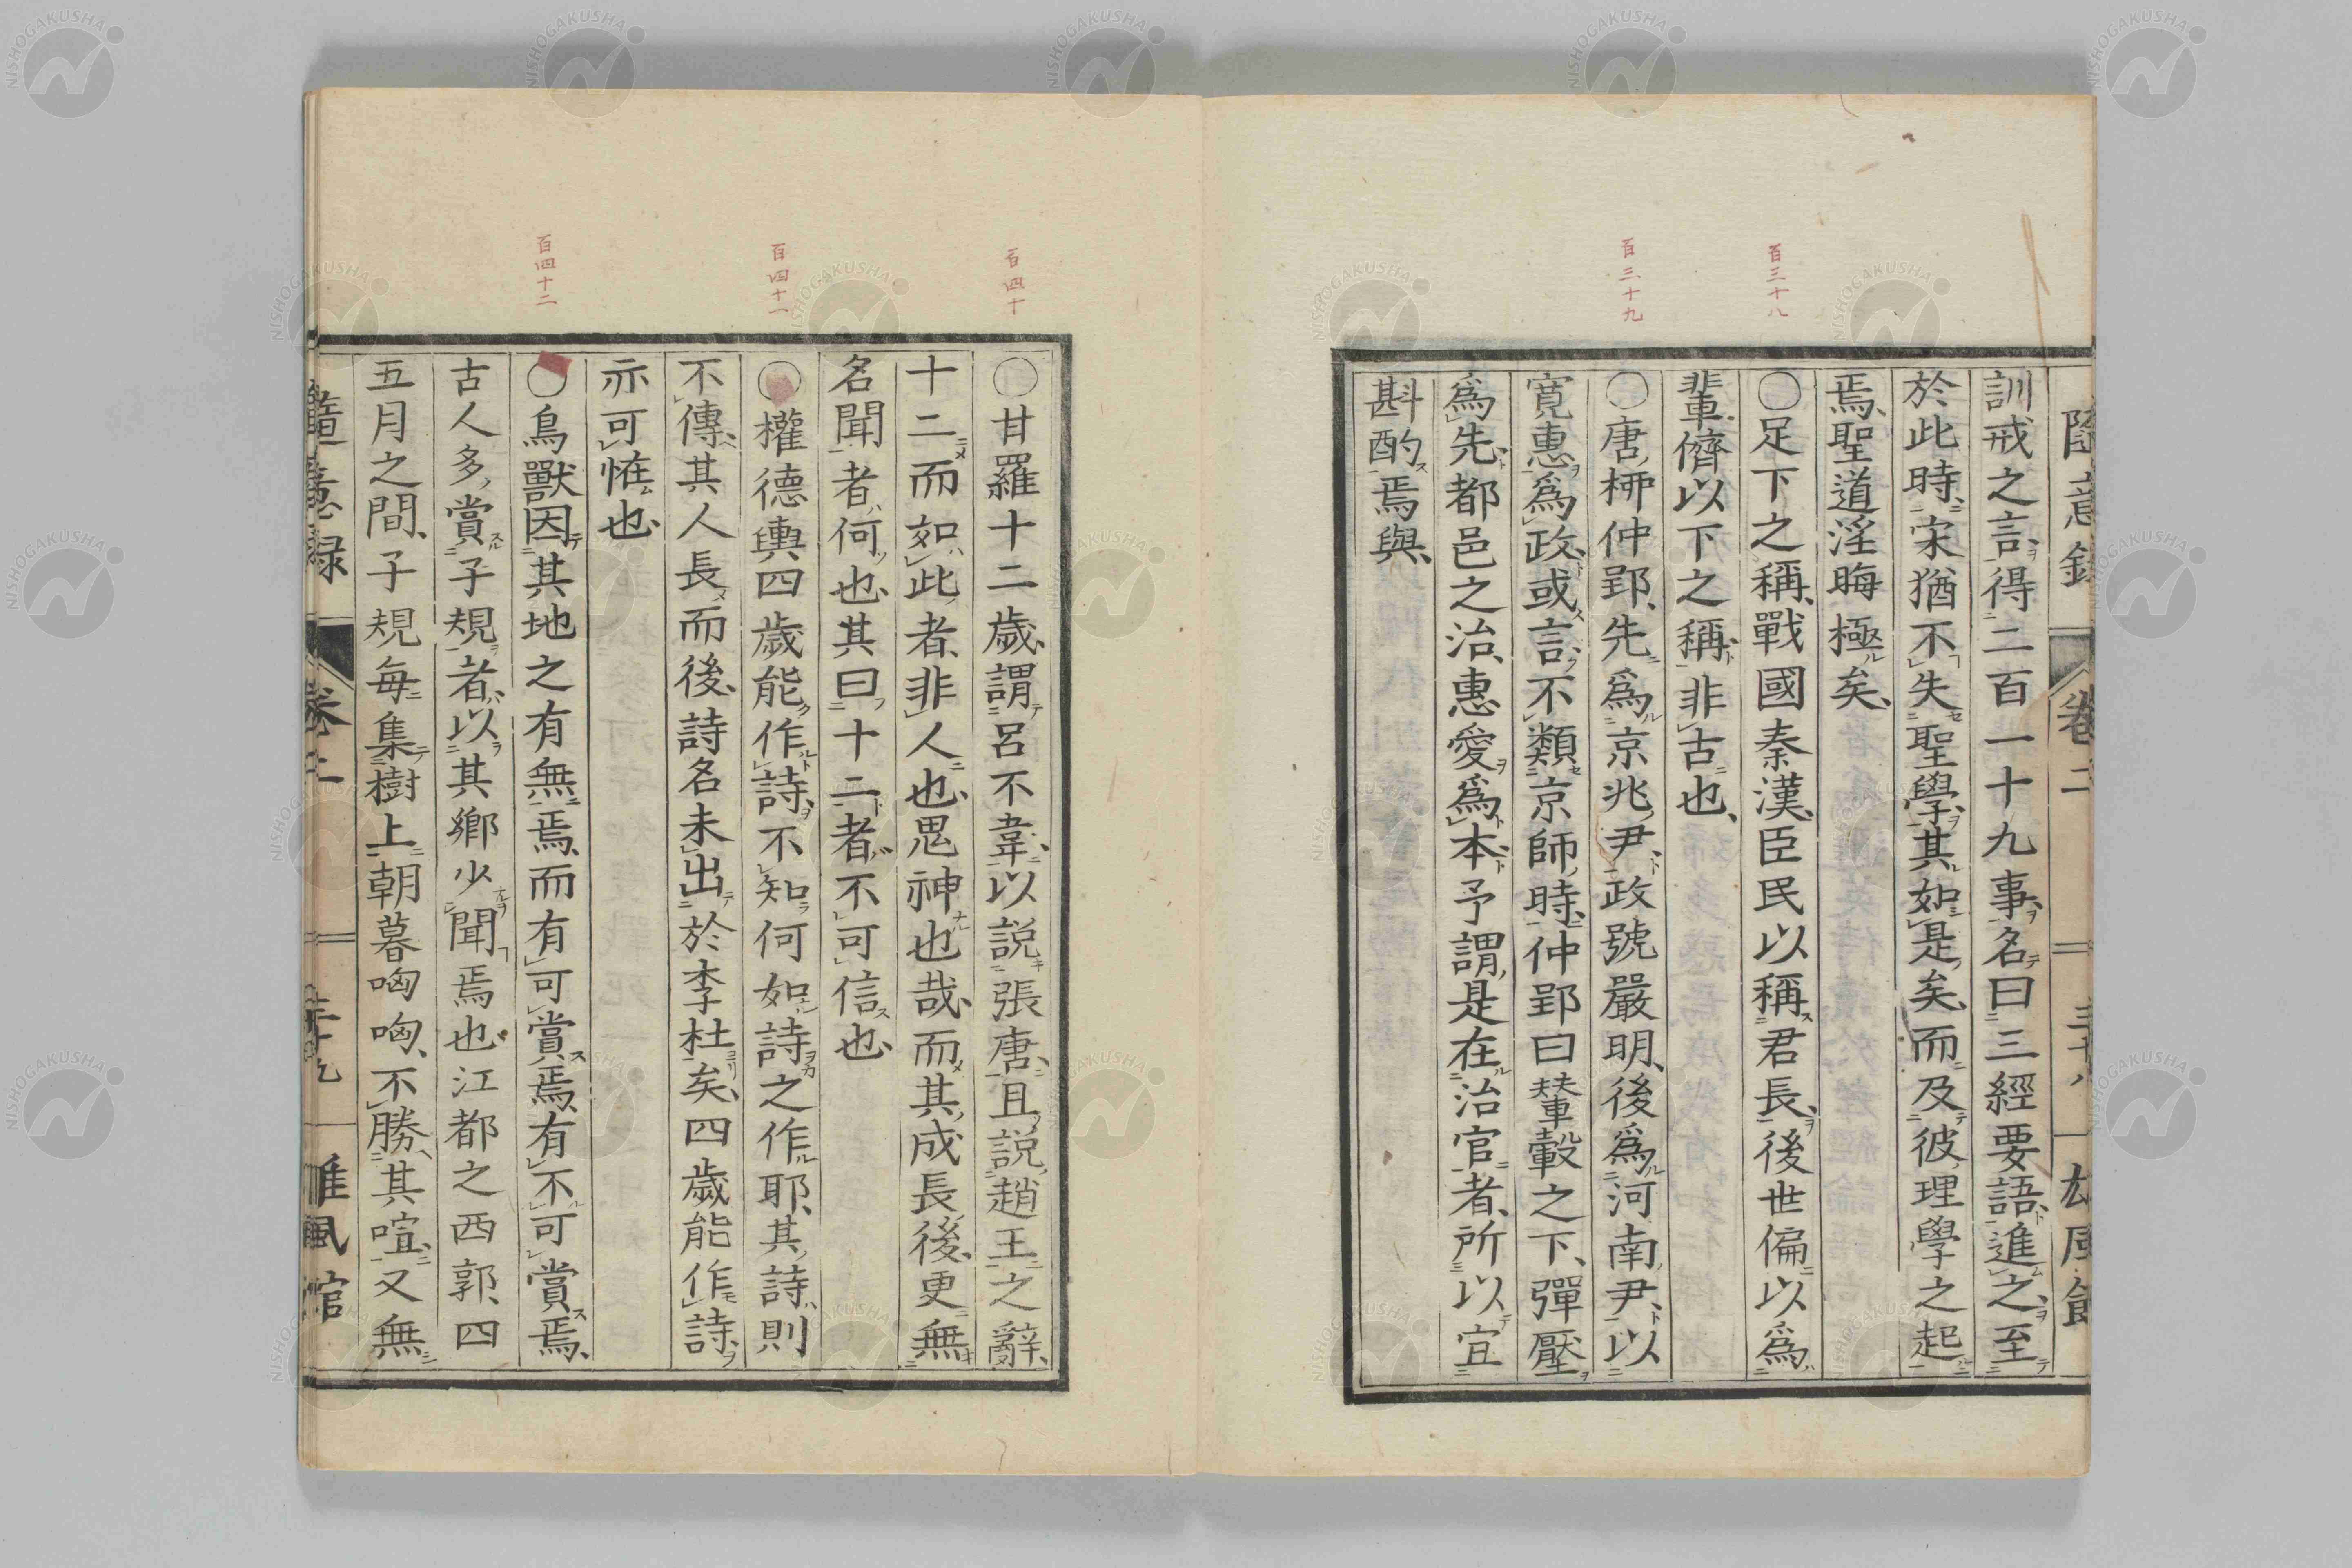 隨意錄 卷二 三十八 雄風館
訓戒之言得二百一十九事名曰三經要語進之至
於此時宋猶不失聖學其如是矣而及彼理學之起
焉聖道淫晦極矣
百三十八
〇足下之稱戰國秦漢臣民以稱君長後世偏以爲
輩儕以下之稱非古也
百三十九
〇唐柳仲郢先爲京兆尹政號嚴明後爲河南尹以
寛惠爲政或言不類京師時仲郢曰輦轂之下彈壓
爲先都邑之治惠愛爲本予謂是在治官者所以宜
斟酌焉與
百四十
〇甘羅十二歲謂呂不韋以説張唐且説趙王之辭
十二而如此者非人也鬼神也哉而其成長後更無
名聞者何也其曰十二者不可信也
百四十一
〇權德輿四歲能作詩不知何如詩之作耶其詩則
不傳其人長而後詩名未出於李杜矣四歲能作詩
亦可恠也
百四十二
〇鳥獸因其地之有無焉而有可賞焉有不可賞焉
古人多賞子規者以其鄉少聞焉也江都之西郭四
五月之間子規每集樹上朝暮啕啕不勝其喧又無
隨意錄 卷二 三十九 雄風館
NISHOGAKUSHA